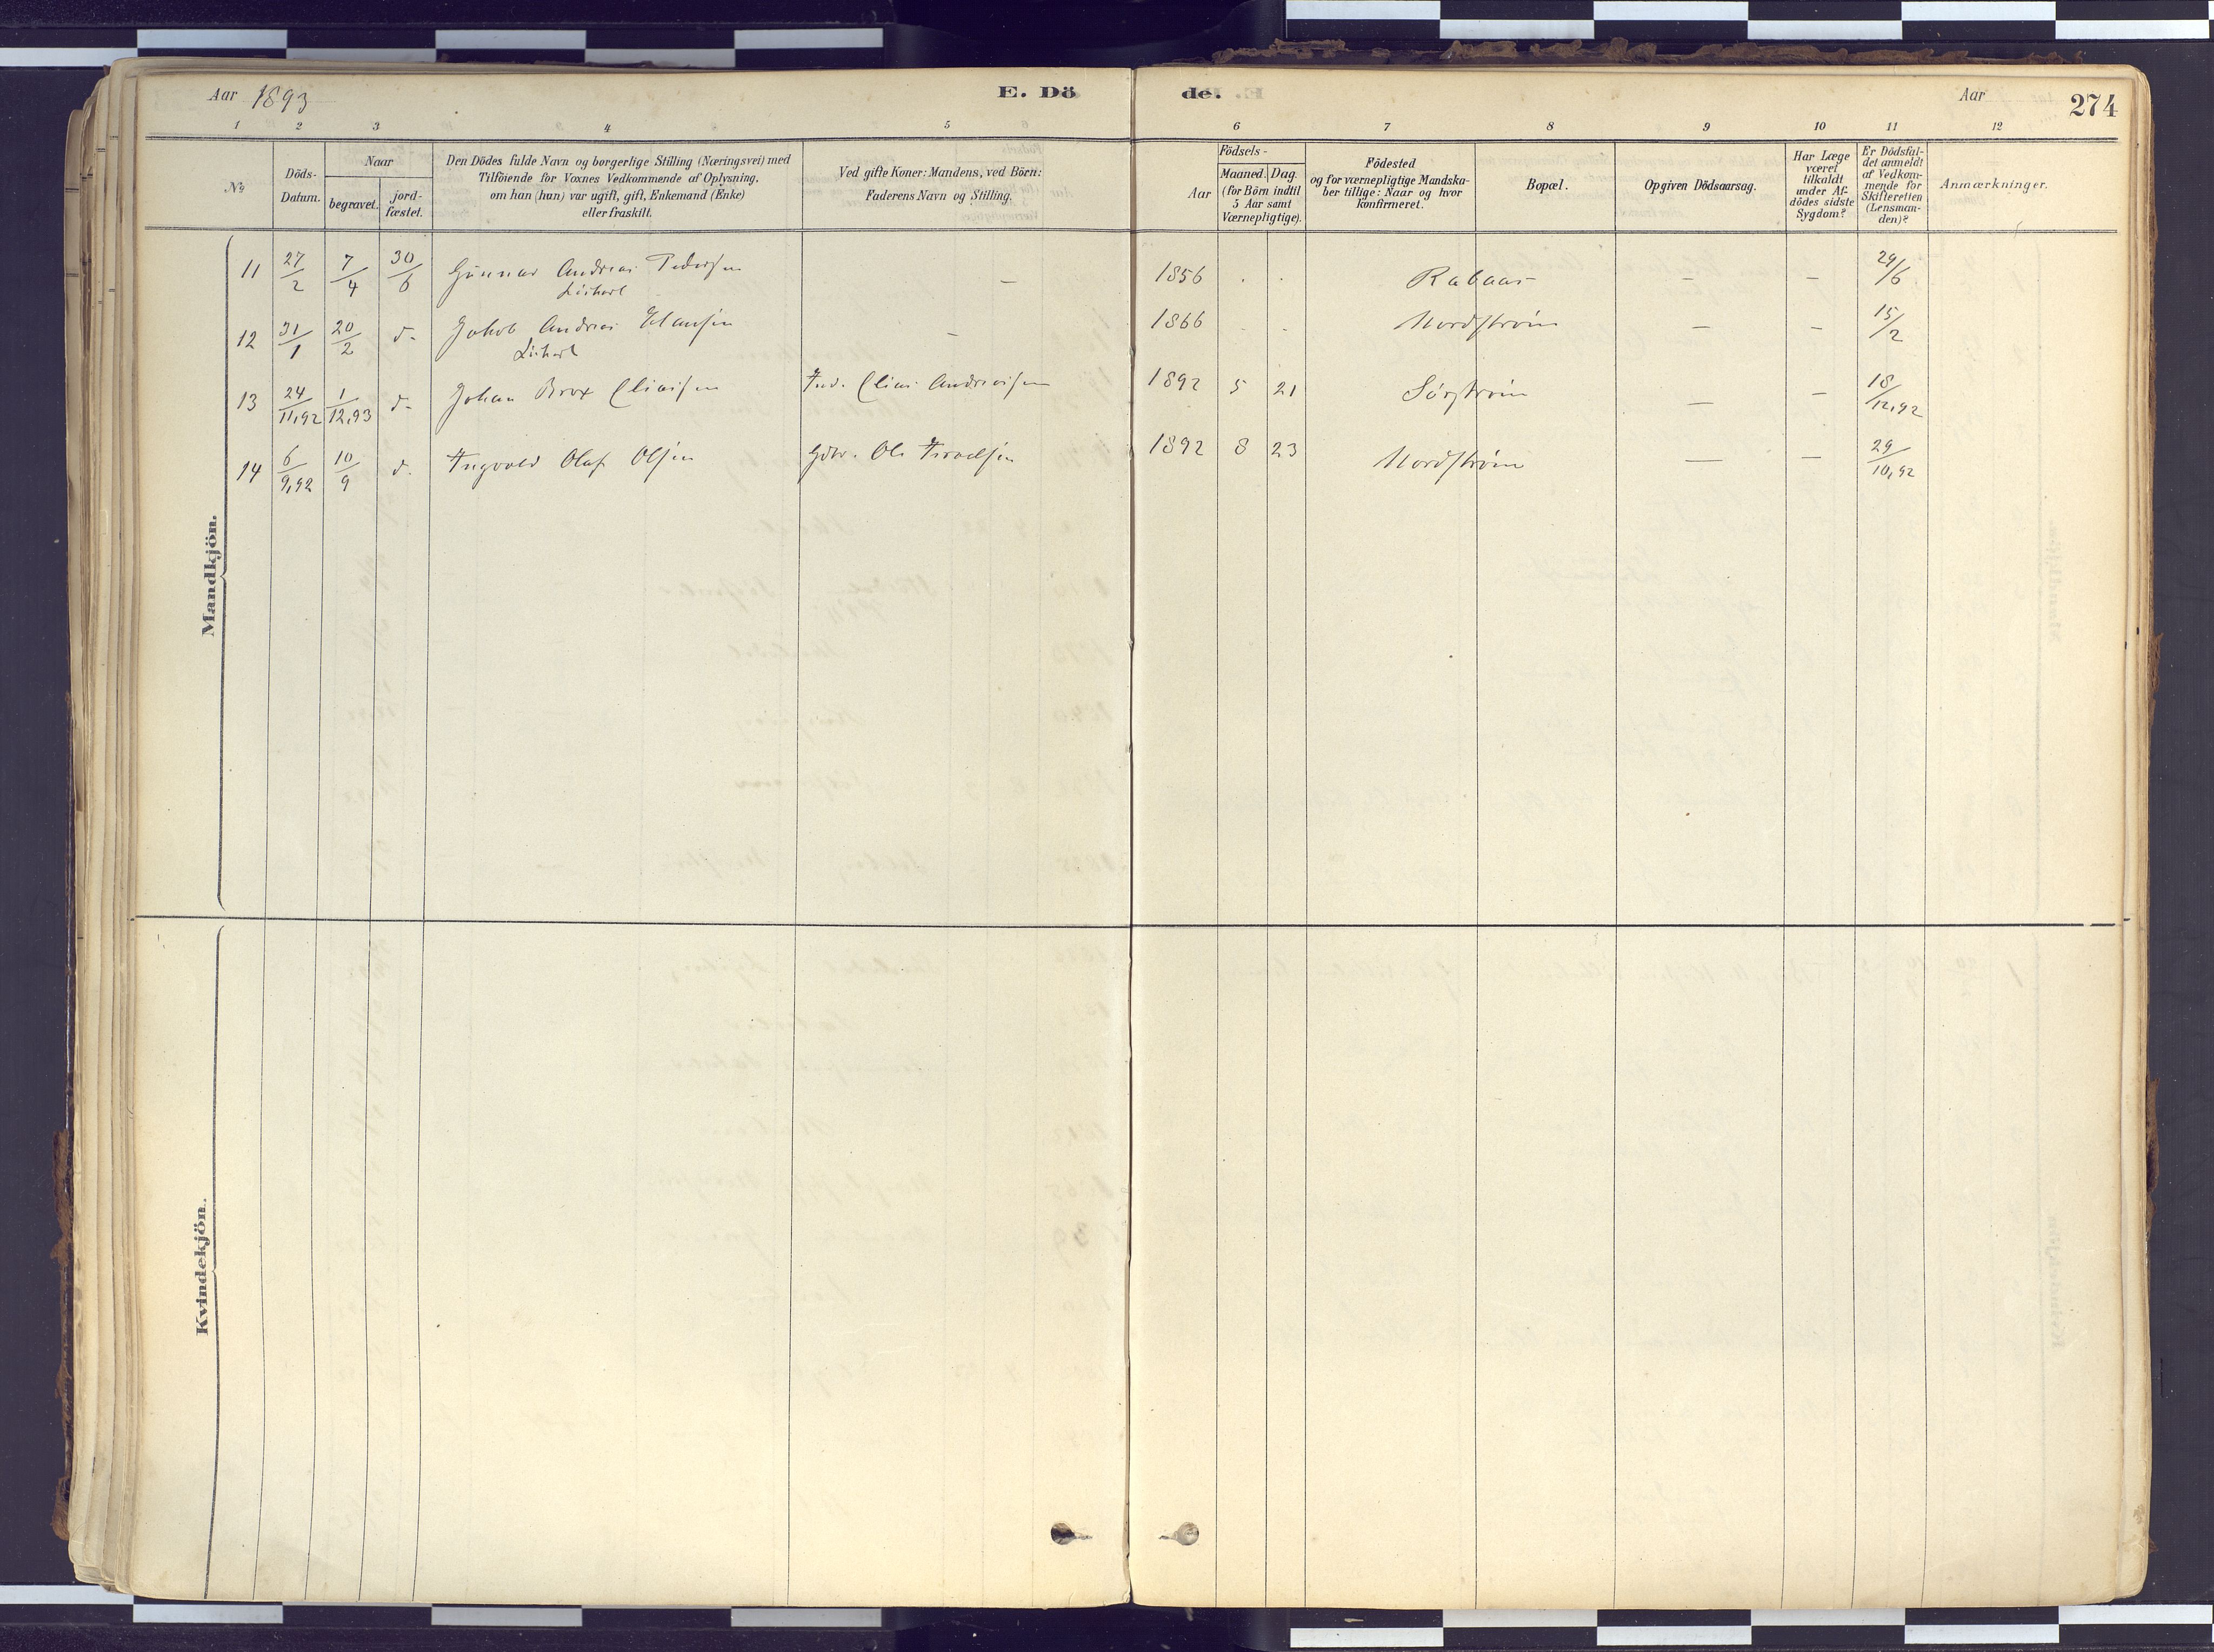 Aar 1893
E. Döde.
Aar
274
1 2 3 4 5 6 7 8 9 10 11 12
No
Döds-Datum.
Naar
begravet.
jord-fæstet.
Den Dödes fulde Navn og borgerlige Stilling (Næringsvei) med
Tilföiende for Voxnes Vedkommende af Oplysning.
om han (hun) var ugift, gift, Enkemand (Enke)
eller fraskilt.
Ved gifte Koner: Mandens, ved Börn:
Faderens Navn og Stilling.
Födsels-
Aar
Maaned. Dag.
(for Börn indtil
5 Aar samt
Værnepligtige).
Födested
og for værnepligtige Mandska-
ber tillige: Naar og hvor
konfirmeret.
Bopæl.
Opgiven Dödsaarsag.
Har Læge
været
tilkaldt
under Af-
dödes sidste
Sygdom?
Er Dödsfal-
det anmeldt
af Vedkom-
mende for
Skifteretten
(Lensman-
den)?
Anmærkninger.
Mandkjön.
11 27/2 7/4 30/6 Gunnar Andreas Pedersen — 1856 . . Rabaas — — 29/6
12 31/1 20/2 d- Jakob Andreas — 1866 . . Nordstrøm — — 15/2
13 24/11,92 1/12,93 d- Johan Brox Eliaisen Ind. Elias Andreaisen 1892 5 21 Sørstrøm — — 18/12,92
14 6/9,92 10/9 d. Ingvald Olaf Olsen Gdbr. Ole Israelsen 1892 8 23 Nordstrøm — — 29/10,92
Kvindekjön.